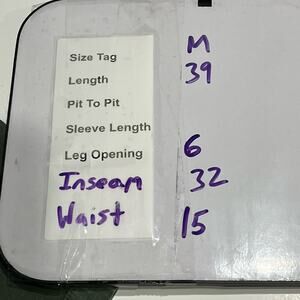 Size Tag M
Length 39
Pit To Pit
Sleeve Length
Leg Opening 6
Inseam 32
Waist 15